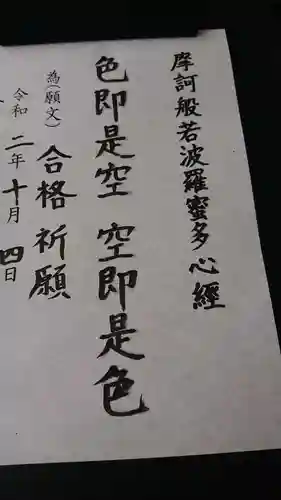 摩訶般若波羅蜜多心經
色即是空 空即是色
為(願文) 合格祈願
令和 二年 十月 四日